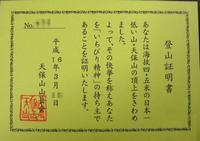 登山証明書
あなたは海抜四・五米の日本一
低い山・天保山の頂上をきわめ
ました。
よって、その快挙を称えあなた
を“いちびり精神”の持ち主で
あることを証明いたします。
平成16年3月
天保山山
No.